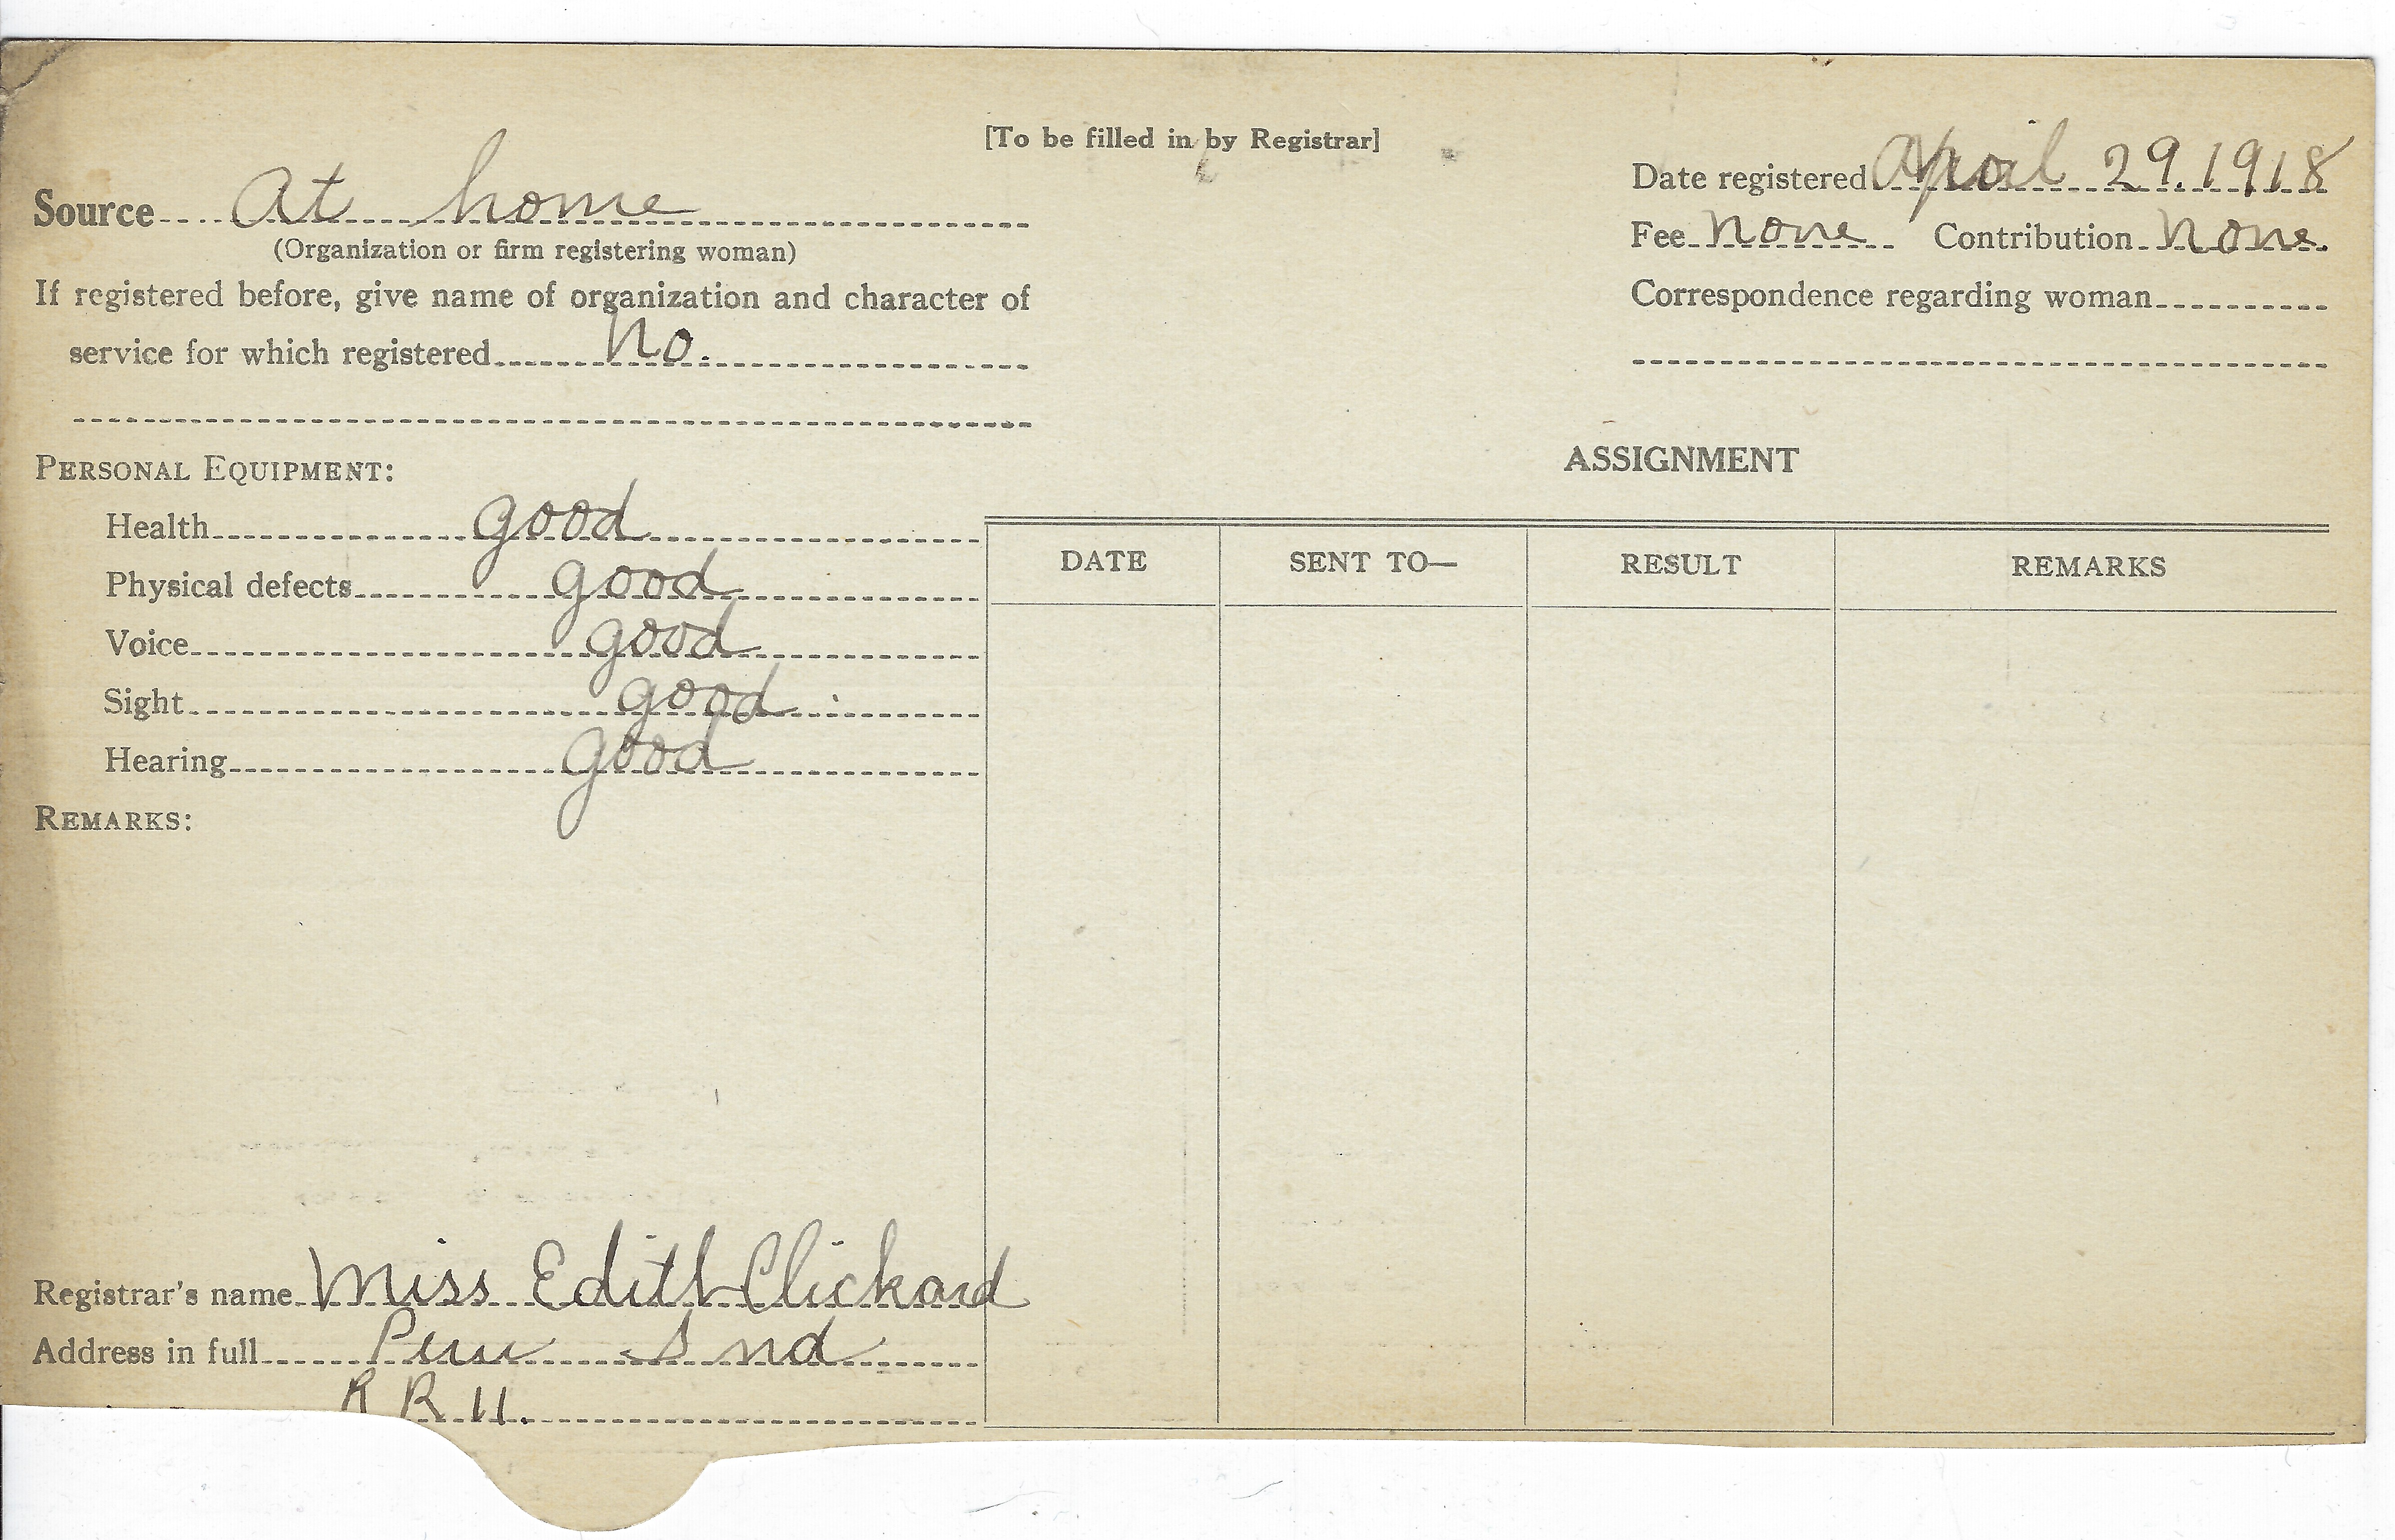 [To be filled in by Registrar]
Source At home
(Organization or firm registering woman)
If registered before, give name of organization and character of
service for which registered No.
Date registered April 29. 1918
Fee None Contribution None.
Correspondence regarding woman
PERSONAL EQUIPMENT:
Health good
Physical defects good
Voice good
Sight good
Hearing good
REMARKS:
ASSIGNMENT
DATE SENT TO— RESULT REMARKS
Registrar's name Miss Edith Clickard
Address in full Peru Ind
R R 11.